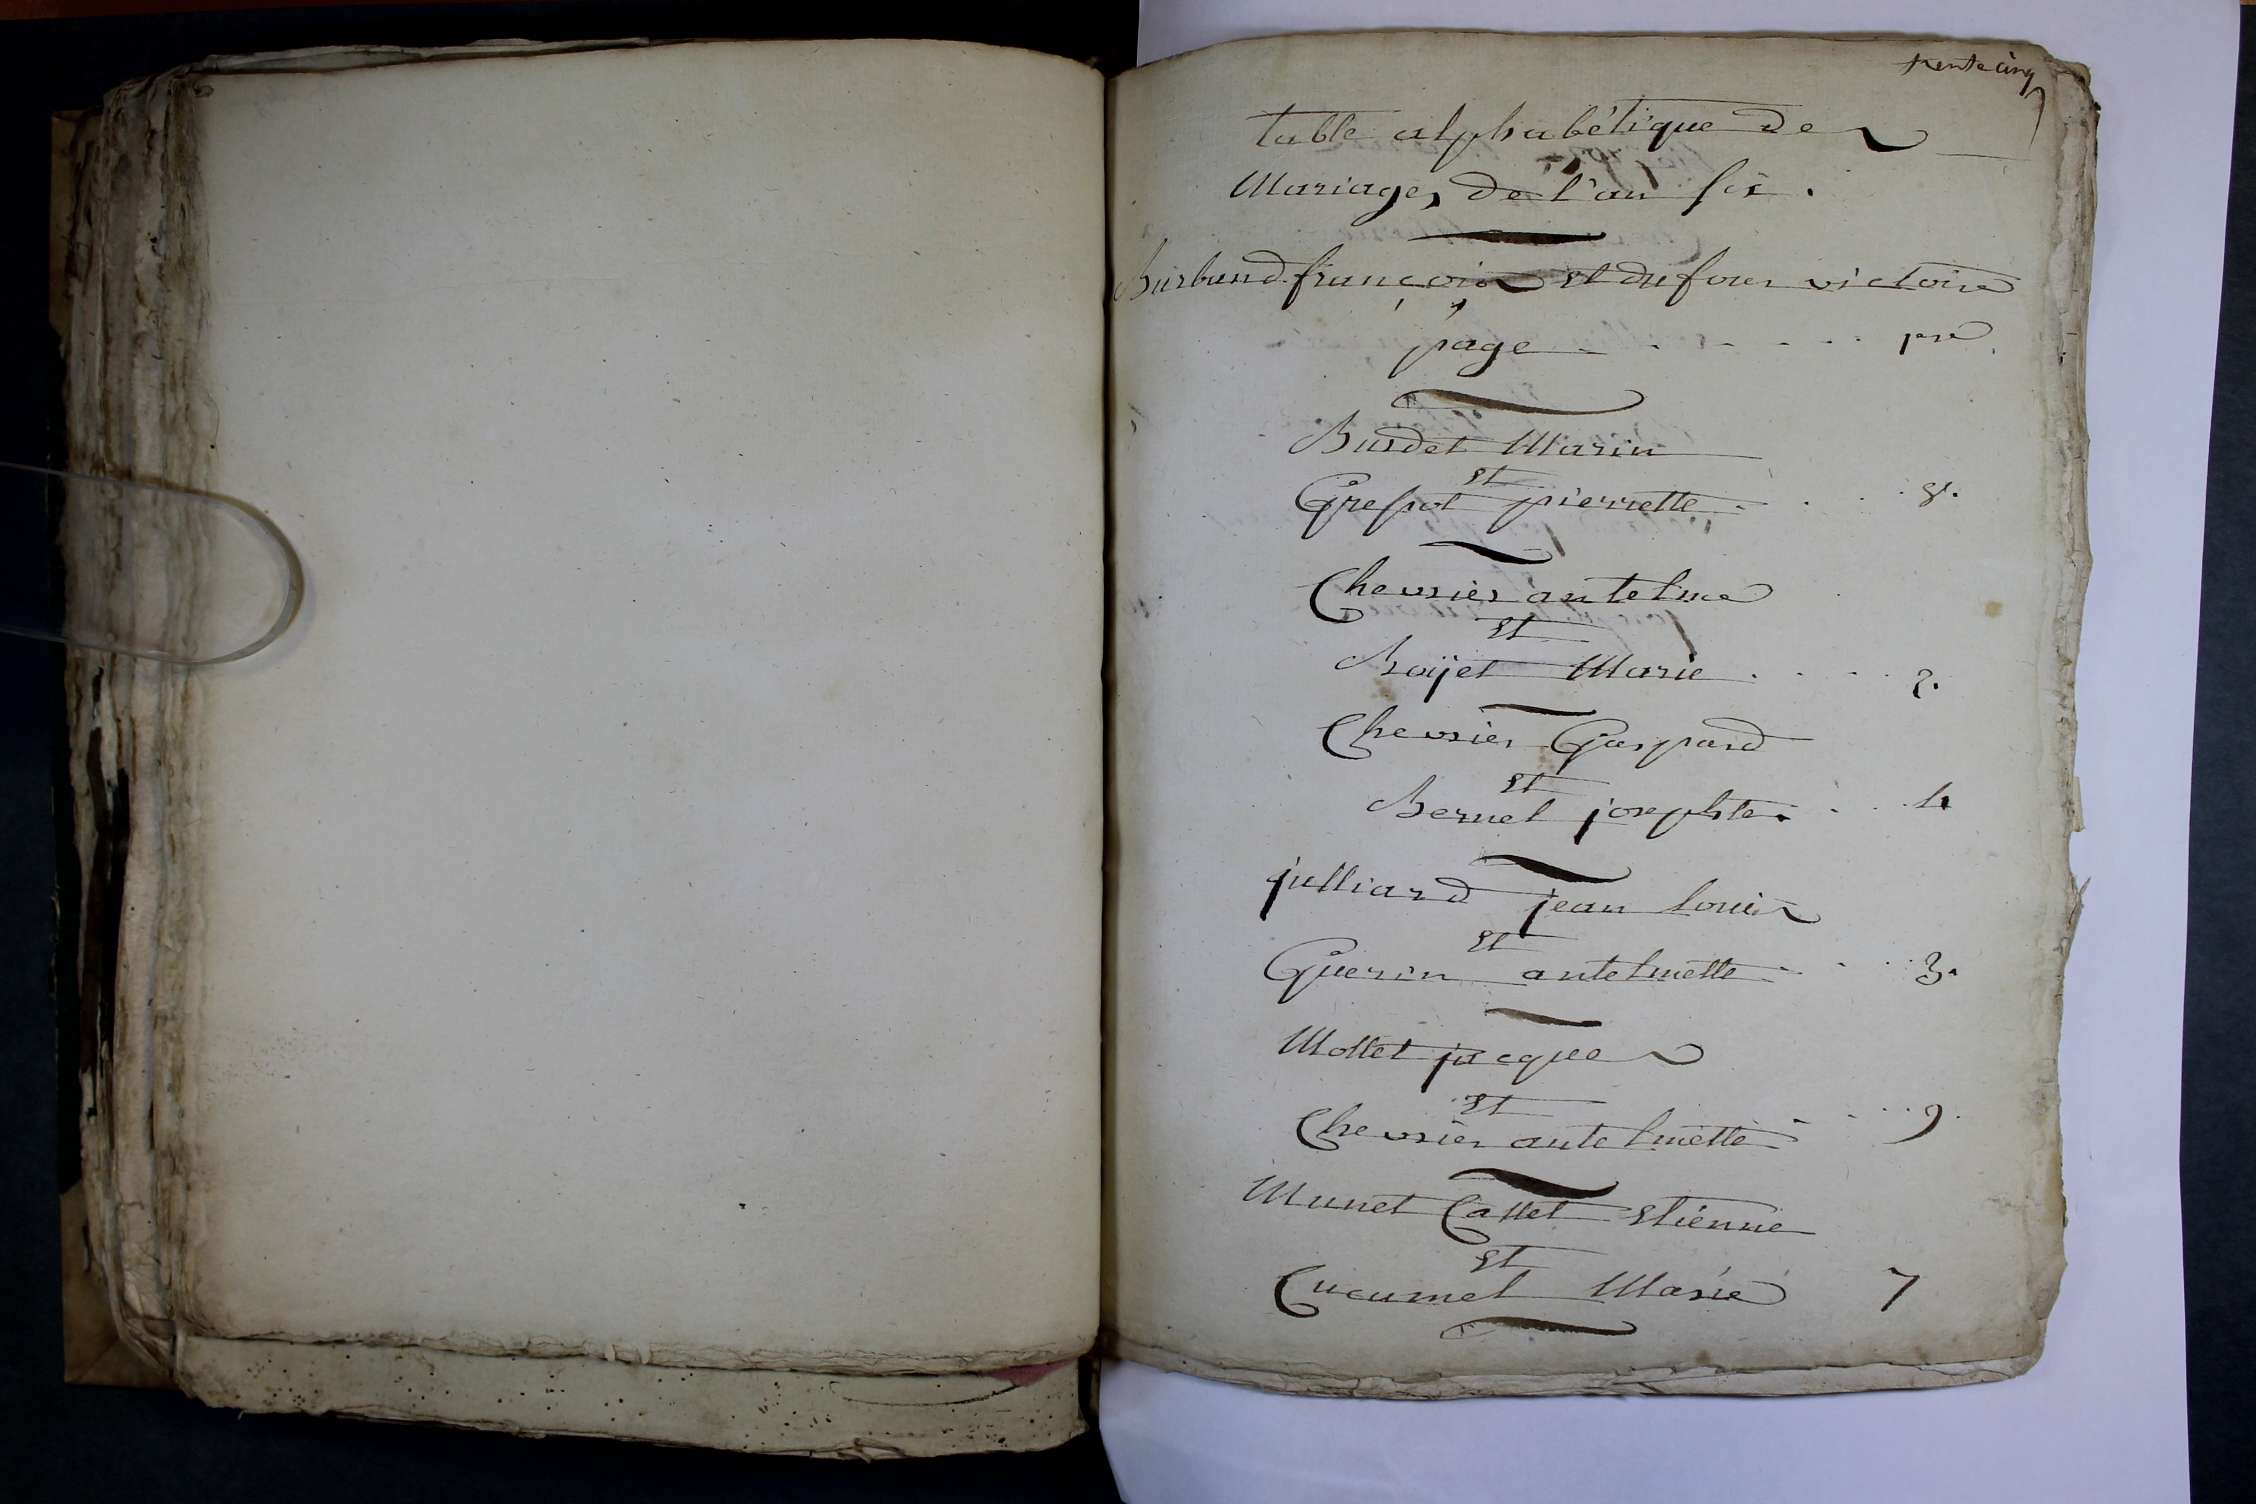 trente cinq
table alphabétique des
Mariages de l'an six.
Burband françois et dufour victoire
page - . - . - . pre
Burdet Marin
et
Grespot pierrette . . . . 8.
Chevrier antelme
et
Roÿet Marie . . . . 2.
Chevrier Gaspard
et
Bernet josephte . . . 4
julliard jean louis
et
Guerin antelmette . . . 3.
Mollet jacques
et
Chevrier antelmette . . . 9.
Munet Cattet etienne
et
Cucumel Marie 7